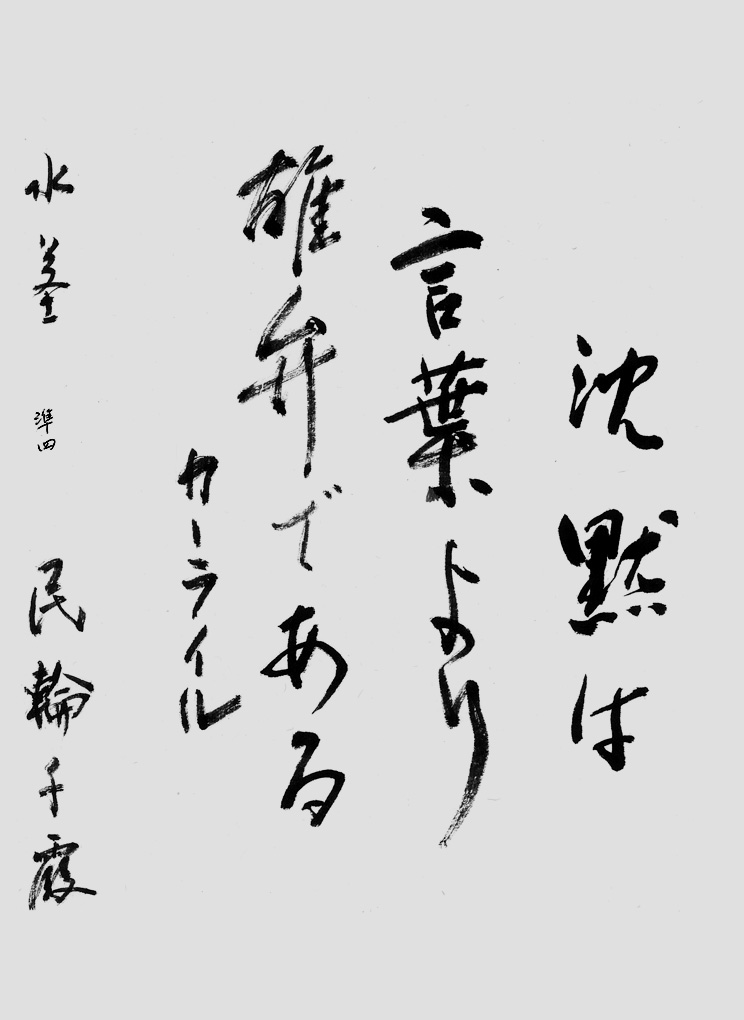 沈黙は
言葉より
雄弁である
カーライル
水茎 準四 民輪千霞